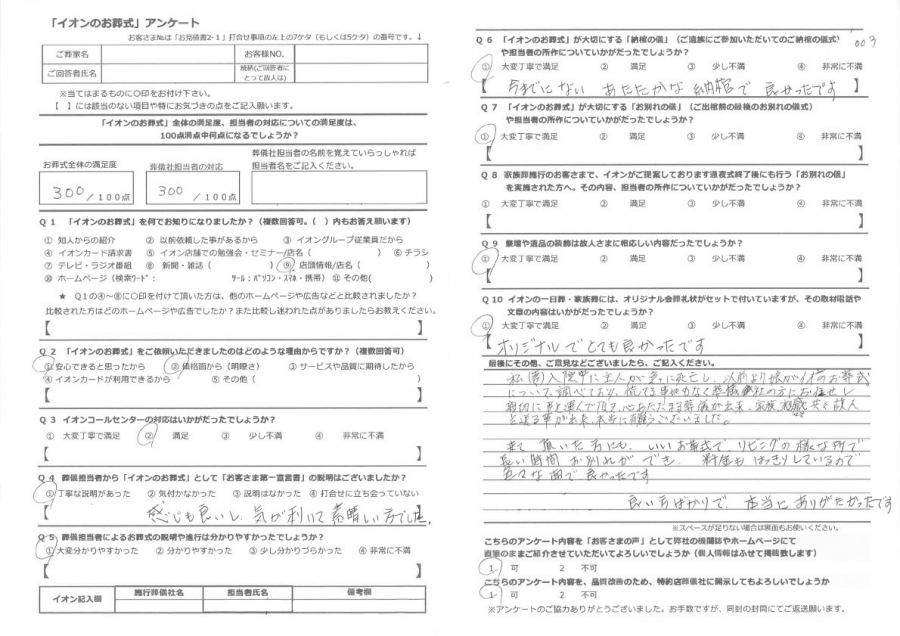 「イオンのお葬式」アンケート
お客さま№は「お見積書2-1」打合せ事項の左上の7ケタ(もしくは5ケタ)の番号です。↓
ご葬家名 お客様NO.
ご回答者氏名 続柄(ご回答者にとって故人は)
※当てはまるものに○印をお付け下さい。
【 】には該当のない項目や特にお気づきの点をご記入願います。
「イオンのお葬式」全体の満足度、担当者の対応についての満足度は、
100点満点中何点になるでしょうか?
お葬式全体の満足度 葬儀社担当者の対応 葬儀社担当者の名前を覚えていらっしゃれば
担当者名をご記入ください。
300/100点 300/100点
Q 1 「イオンのお葬式」を何でお知りになりましたか?(複数回答可。( )内もお答え願います)
① 知人からの紹介 ② 以前依頼した事があるから ③ イオングループ従業員だから
④ イオンカード請求書 ⑤ イオン店舗での勉強会・セミナー/店名( ) ⑥ チラシ
⑦ テレビ・ラジオ番組 ⑧ 新聞・雑誌( ) ⑨ 店頭情報/店名( )
⑩ ホームページ(検索ワード: ツール:パソコン・スマホ・携帯) ⑪ その他( )
★ Q1の④~⑧に○印を付けて頂いた方は、他のホームページや広告などと比較されましたか?
比較された方はどのホームページや広告でしたか?また比較し迷われた点がありましたらお教えください。
【 】
Q 2 「イオンのお葬式」をご依頼いただきましたのはどのような理由からですか?(複数回答可)
①安心できると思ったから ②価格面から(明瞭さ) ③ サービスや品質に期待したから
④イオンカードが利用できるから ⑤ その他( )
Q 3 イオンコールセンターの対応はいかがだったでしょうか?
① 大変丁寧で満足 ② 満足 ③ 少し不満 ④ 非常に不満
【 】
Q 4 葬儀担当者から「イオンのお葬式」として「お客さま第一宣言書」の説明はございましたか?
①丁寧な説明があった ② 気付かなかった ③ 説明はなかった ④ 打合せに立ち会っていない
【 感じも良いし、気が利いて素晴しい方でした。 】
Q 5 葬儀担当者によるお葬式の説明や進行は分かりやすかったでしょうか?
①大変分かりやすかった ② 分かりやすかった ③ 少し分かりづらかった ④ 非常に不満
【 】
イオン記入欄 施行葬儀社名 担当者氏名 備考欄
003
Q 6 「イオンのお葬式」が大切にする「納棺の儀」(ご遺族にご参加いただいてのご納棺の儀式)
や担当者の所作についていかがだったでしょうか?
① 大変丁寧で満足 ② 満足 ③ 少し不満 ④ 非常に不満
【 今までにない あたたかな 納棺で 良かったです 】
Q 7 「イオンのお葬式」が大切にする「お別れの儀」(ご出棺前の最後のお別れの儀式)
や担当者の所作についていかがだったでしょうか?
① 大変丁寧で満足 ② 満足 ③ 少し不満 ④ 非常に不満
【 】
Q 8 家族葬施行のお客さまで、イオンがご提案しております通夜式終了後にも行う「お別れの儀」
を実施された方へ。その内容、担当者の所作についていかがだったでしょうか?
① 大変丁寧で満足 ② 満足 ③ 少し不満 ④ 非常に不満
【 】
Q 9 祭壇や遺品の装飾は故人さまに相応しい内容だったでしょうか?
① 大変丁寧で満足 ② 満足 ③ 少し不満 ④ 非常に不満
【 】
Q 10 イオンの一日葬・家族葬には、オリジナル会葬礼状がセットで付いていますが、その取材電話や
文章の内容はいかがだったでしょうか?
① 大変丁寧で満足 ② 満足 ③ 少し不満 ④ 非常に不満
【 オリジナルでとても良かったです 】
最後にその他、ご意見などございましたら、ご記入ください。
私(妻)入院中に主人が急に死亡し、以前より娘がイオンのお葬式
について調べており、慌てる事もなく葬儀社の方にお任せし
親切に事を運んで頂き、心あたたまる葬儀が出来、家族 親戚共々故人
を送る事が出来、本当に有難うございました。
来て頂いた方にも、いいお葬式で、リビングの様な所で
長い時間お別れができ、料金もはっきりしているので
色々な面で良かったです
良い方ばかりで、本当にありがたかったです
※スペースが足りない場合は裏面もお使いください。
こちらのアンケート内容を「お客さまの声」として弊社の機関誌やホームページにて
直筆のままご紹介させていただいてよろしいでしょうか(個人情報はふせて掲載致します)
1 可 2 不可
こちらのアンケート内容を、品質改善のため、特約店葬儀社に開示してもよろしいでしょうか
1 可 2 不可
※アンケートのご協力ありがとうございました。お手数ですが、同封の封筒にてご返送願います。